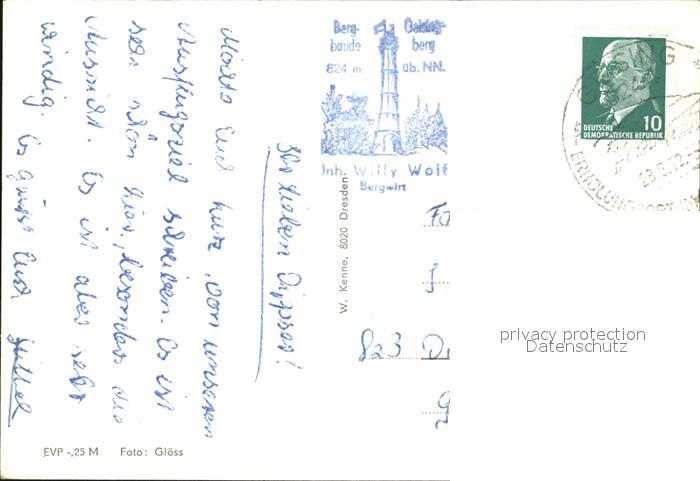 Ihr lieben Dippser!
Möchte Euch kurz, von unserem
Ausflugsziel schreiben. Es ist
sehr schön hier, besonders die
Aussicht. Es ist aber sehr
windig. Es grüßt Euch
Berg- Geising-
baude berg
824 m üb. NN.
Inh. Willy Wolf
Bergwirt
W. Kenne, 8020 Dresden
10
DEUTSCHE
DEMOKRATISCHE REPUBLIK
ERHOLUNGSORT
823 Di
privacy protection
Datenschutz
EVP -,25 M Foto: Glöss